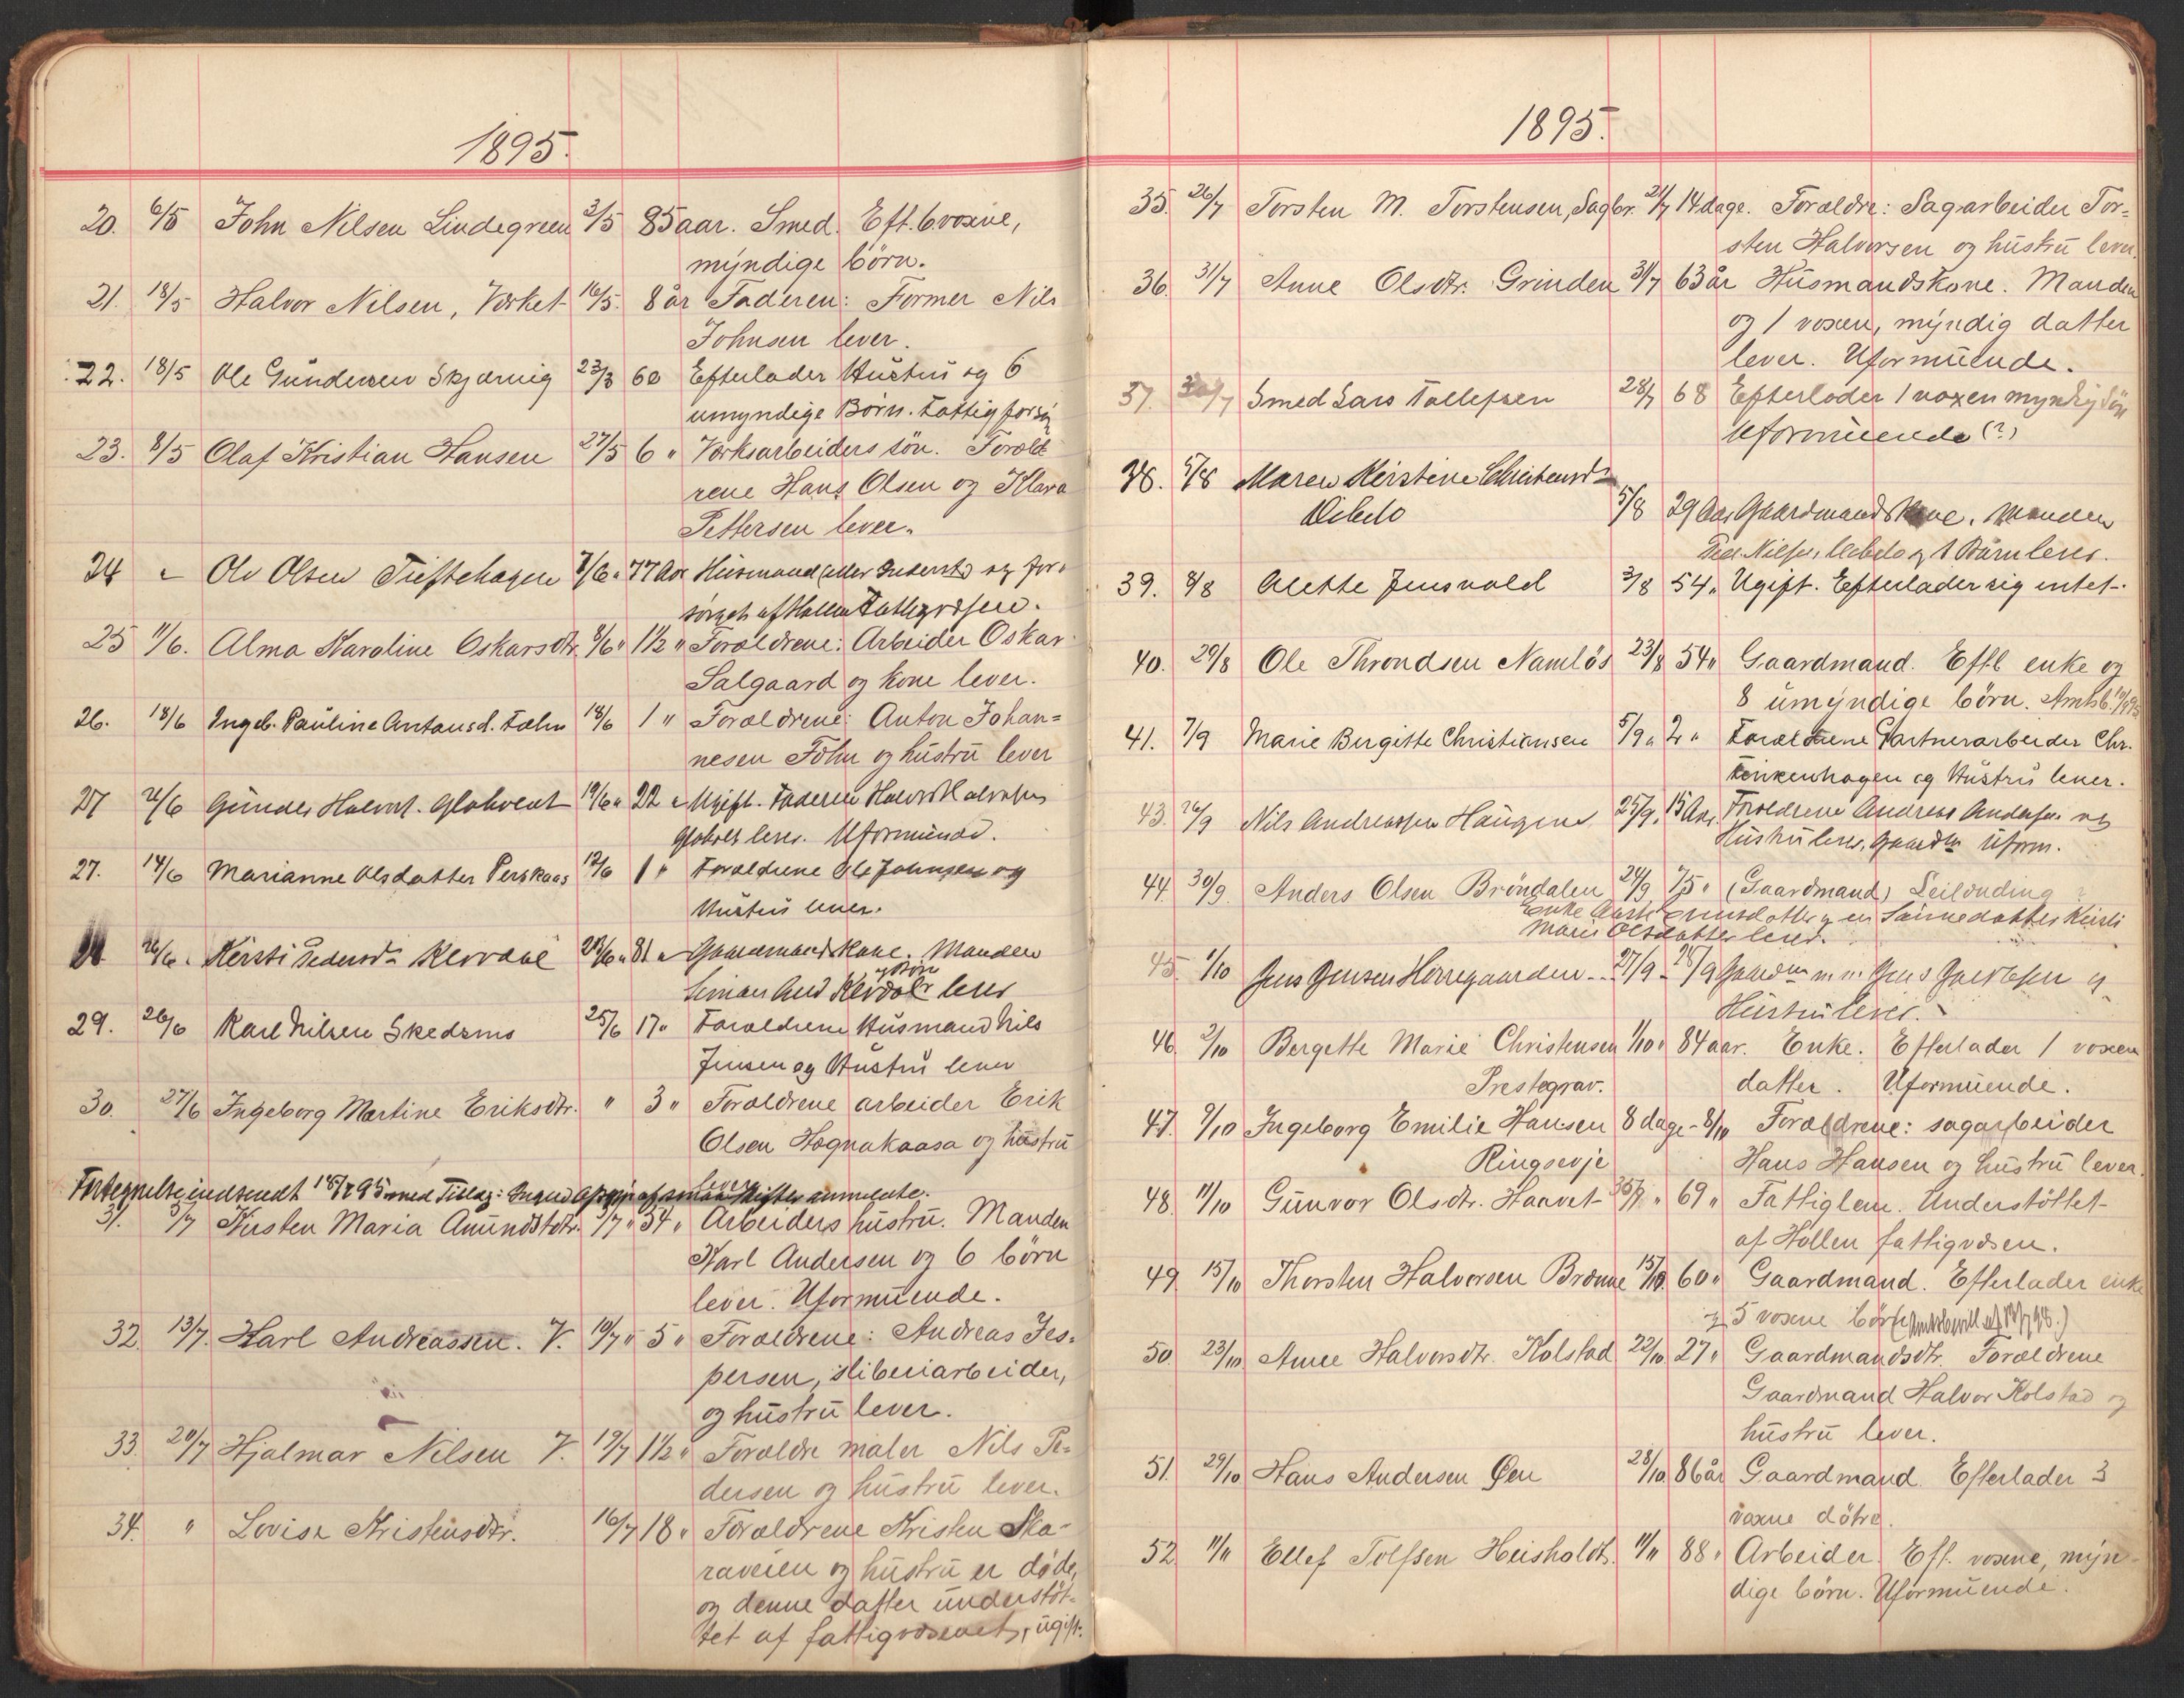 1895.
20. 6/5 John Nilsen Lindegreen 3/5 85 aar. Smed. Eft. 6 voxne,
myndige börn.
21. 18/5 Halvor Nilsen, Værket 16/5. 8 år Faderen: Former Nils
Johnsen lever.
22. 18/5 Ole Gundersen Skjærnig 23/3 60 Efterlader Hustru og 6
umyndige Börn. Fattigfors
23. 8/5 Olaf Kristian Hansen 27/5 6 " Værksarbeiders sön. Foræld
rene Hans Olsen og Klara
Pettersen lever.
24 " Ole Olsen Tieftehagen 7/6 " 77 Aar Husmand (eller Inderst) og for-
sörget af Hollen Fattigvæsen.
25 11/6. Alma Karoline Oskarsdtr. 8/6 " 1½ " Forældrene: Arbeider Oskar
Salgaard og kone lever.
26. 18/6 Ingeb. Pauline Antonsd. Fæhn 18/6 1 " Forældrene: Anton Johan=
nesen Föhn og hustru lever
27 21/6 Gunder Halvors. 19/6 " 22 " Ugift. Faderen Halvor Halvorsen
lever. Uformuende.
27. 14/6 Marianne Olsdatter Perskaas 12/6 1 " Forældrene Ole Johnsen og
Hustru lever.
26/6. Kirsti Pedersd. Kervdal 23/6 " 81 " Gaardmandskone. Manden
Simon And Kervdal og Börn lever
29. 26/6 Karl Nilsen Skedsmo 25/6 17 " Forældrene Husmand Nils
Jensen og Hustru lever
30. 27/6 Ingeborg Martine Eriksdtr. " 3 " Forældrene arbeider Erik
Olsen Hognakaasa og hustru
lever.
Fortegnelse indsendt 18/7 95 med Tillæg: Ingen
31. 5/7 Kirsten Maria Amundsdtr. 5/7 " 34 " Arbeiders hustru. Manden
Karl Andersen og 6 börn
lever. Uformuende.
32. 13/7. Karl Andreassen. V. 10/7 " 5 " Forældrene: Andreas Jes=
persen, sliberiarbeider,
og hustru lever.
33. 20/7 Hjalmar Nilsen V. 19/7 1½ " Forældre maler Nils Pe=
dersen og hustru lever.
34. " Lovise Kristensdtr. 16/7 18 " Forældrene Kristen Ska-
raveien og hustru er döde,
og denne datter understöt-
tet af fattigvæsenet, ugift.
1895.
35. 26/7 Torsten M. Torstensen, Sagbr. 21/7 14 dage. Forældre: Sagarbeider Tor=
sten Halvorsen og hustru lever.
36. 31/7 Anne Olsdtr. Grinden 31/7 63 år Husmandskone. Manden
og 1 voxen, myndig datter
lever. Uformuende.
37. 30/7 Smed Lars Tollefsen 28/7 68 Efterlader 1 voxen myndig Sön
Uformuende (?)
38. 5/8 Maren Kirstine Christensd.
5/8 29 Aar Gaardmandskone. Manden
Ped. Nilsen, og 1 Barn lever.
39. 8/8 Alette Jensvold 3/8 54 " Ugift. Efterlader sig intet.
40. 29/8 Ole Throndsen Namlös 23/8 54 " Gaardmand. Eftl enke og
8 umyndige börn.
41. 7/9 Marie Bergitte Christiansen 5/9 " 2 " Forældrene Gartnerarbeider Chr.
Finkenhagen og Hustru lever.
43. 26/9 Nils Andreassen Haugene 25/9. 15 Aar. Forældrene Andreas Andersen og
Hustru lever, Gaardm Uform.
44. 30/9. Anders Olsen Bröndalen 24/9 75 " (Gaardmand) Leilænding ?
Enke og en Sönnedatter Kirsti
Marie Olsdatter lever.
45. 1/10 Jens Jensen Horregaarden 27/9 - 18/9 Jens Jacobsen og
Hustru lever.
46. 2/10 Bergette Marie Christensen 1/10 " 84 aar. Enke. Efterlader 1 voxen
Prestegrav. datter. Uformuende.
47. 9/10 Ingeborg Emilie Hansen 8 dage - 8/10 Forældrene: sagarbeider
Ringsevje Hans Hansen og hustru lever.
48. 11/10 Gunvor Olsdtr. Haavet 30/9 " 69 " Fattiglem. Understöttet
af Hollen fattigvæsen.
49. 15/10 Thorsten Halvorsen Brænne 15/10. 60 " Gaardmand. Efterlader enke
og 5 voxne börn
50. 23/10 Anne Halvorsdtr. Kolstad 22/10 27 " Gaardmandsdtr. Forældrene
Gaardmand Halvor Kolstad og
hustru lever.
51. 29/10 Hans Andersen Øen 28/10 86 år Gaardmand. Efterlader 3
voxne dötre.
52. 11/11 Ellef Tolfsen Heisholdt. 11/11 88 " Arbeider. Eft. voxne, myn-
dige börn. Uformuende.